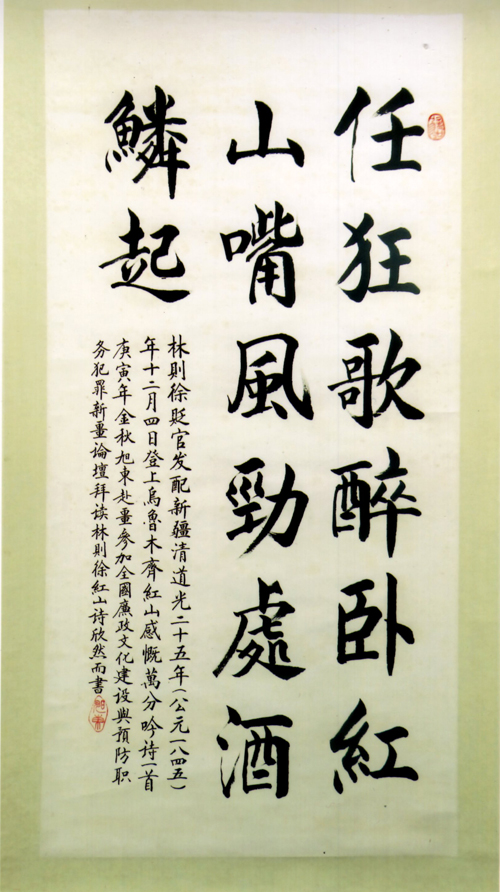 任狂歌醉卧紅
山嘴風勁處酒
鱗起
林則徐貶官发配新疆清道光二十五年(公元一八四五)
年十二月四日登上烏魯木齊紅山感慨萬分吟诗一首
庚寅年金秋旭東赴畺參加全國廉政文化建设與預防职
务犯罪新畺論壇拜读林則徐紅山诗欣然而書